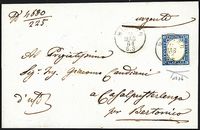 N 4680
225
urgente
Al Pregiatissimo
Sig. Ing. Giacomo Candiani
d'uff.
a Casalpusterlengo
per
Bertonico